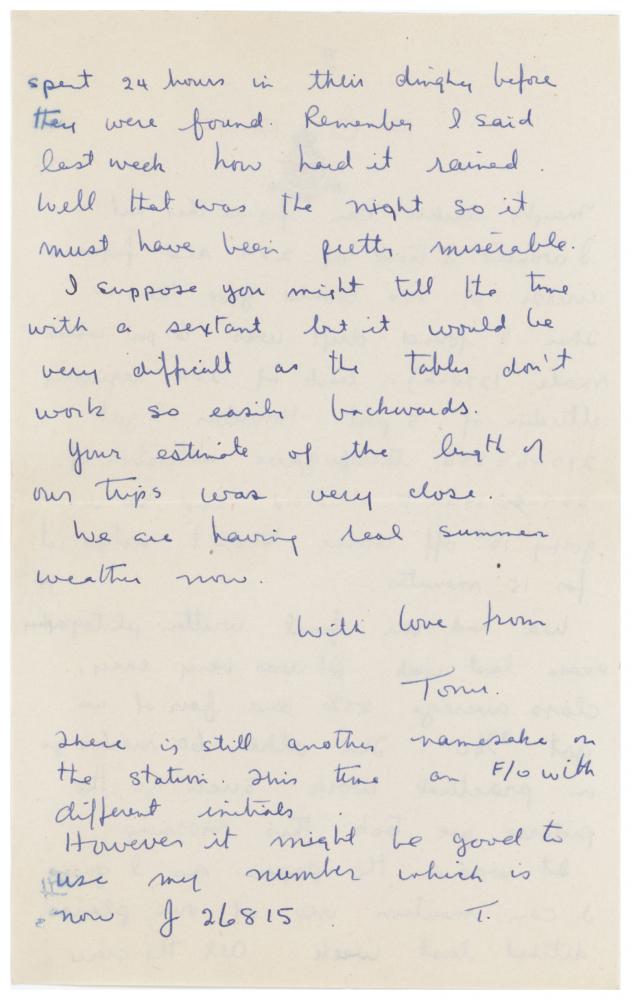 spent 24 hours in their dinghy before
they were found. Remember I said
last week how hard it rained.
Well that was the night so it
must have been pretty miserable.
I suppose you might tell the time
with a sextant but it would be
very difficult as the tables don't
work so easily backwards.
Your estimate of the length of
our trips was very close.
We are having real summer
weather now.
With love from
Tony.
There is still another namesake on
the station. This time an F/O with
different initials.
However it might be good to
use my number which is
now J 26815 T.